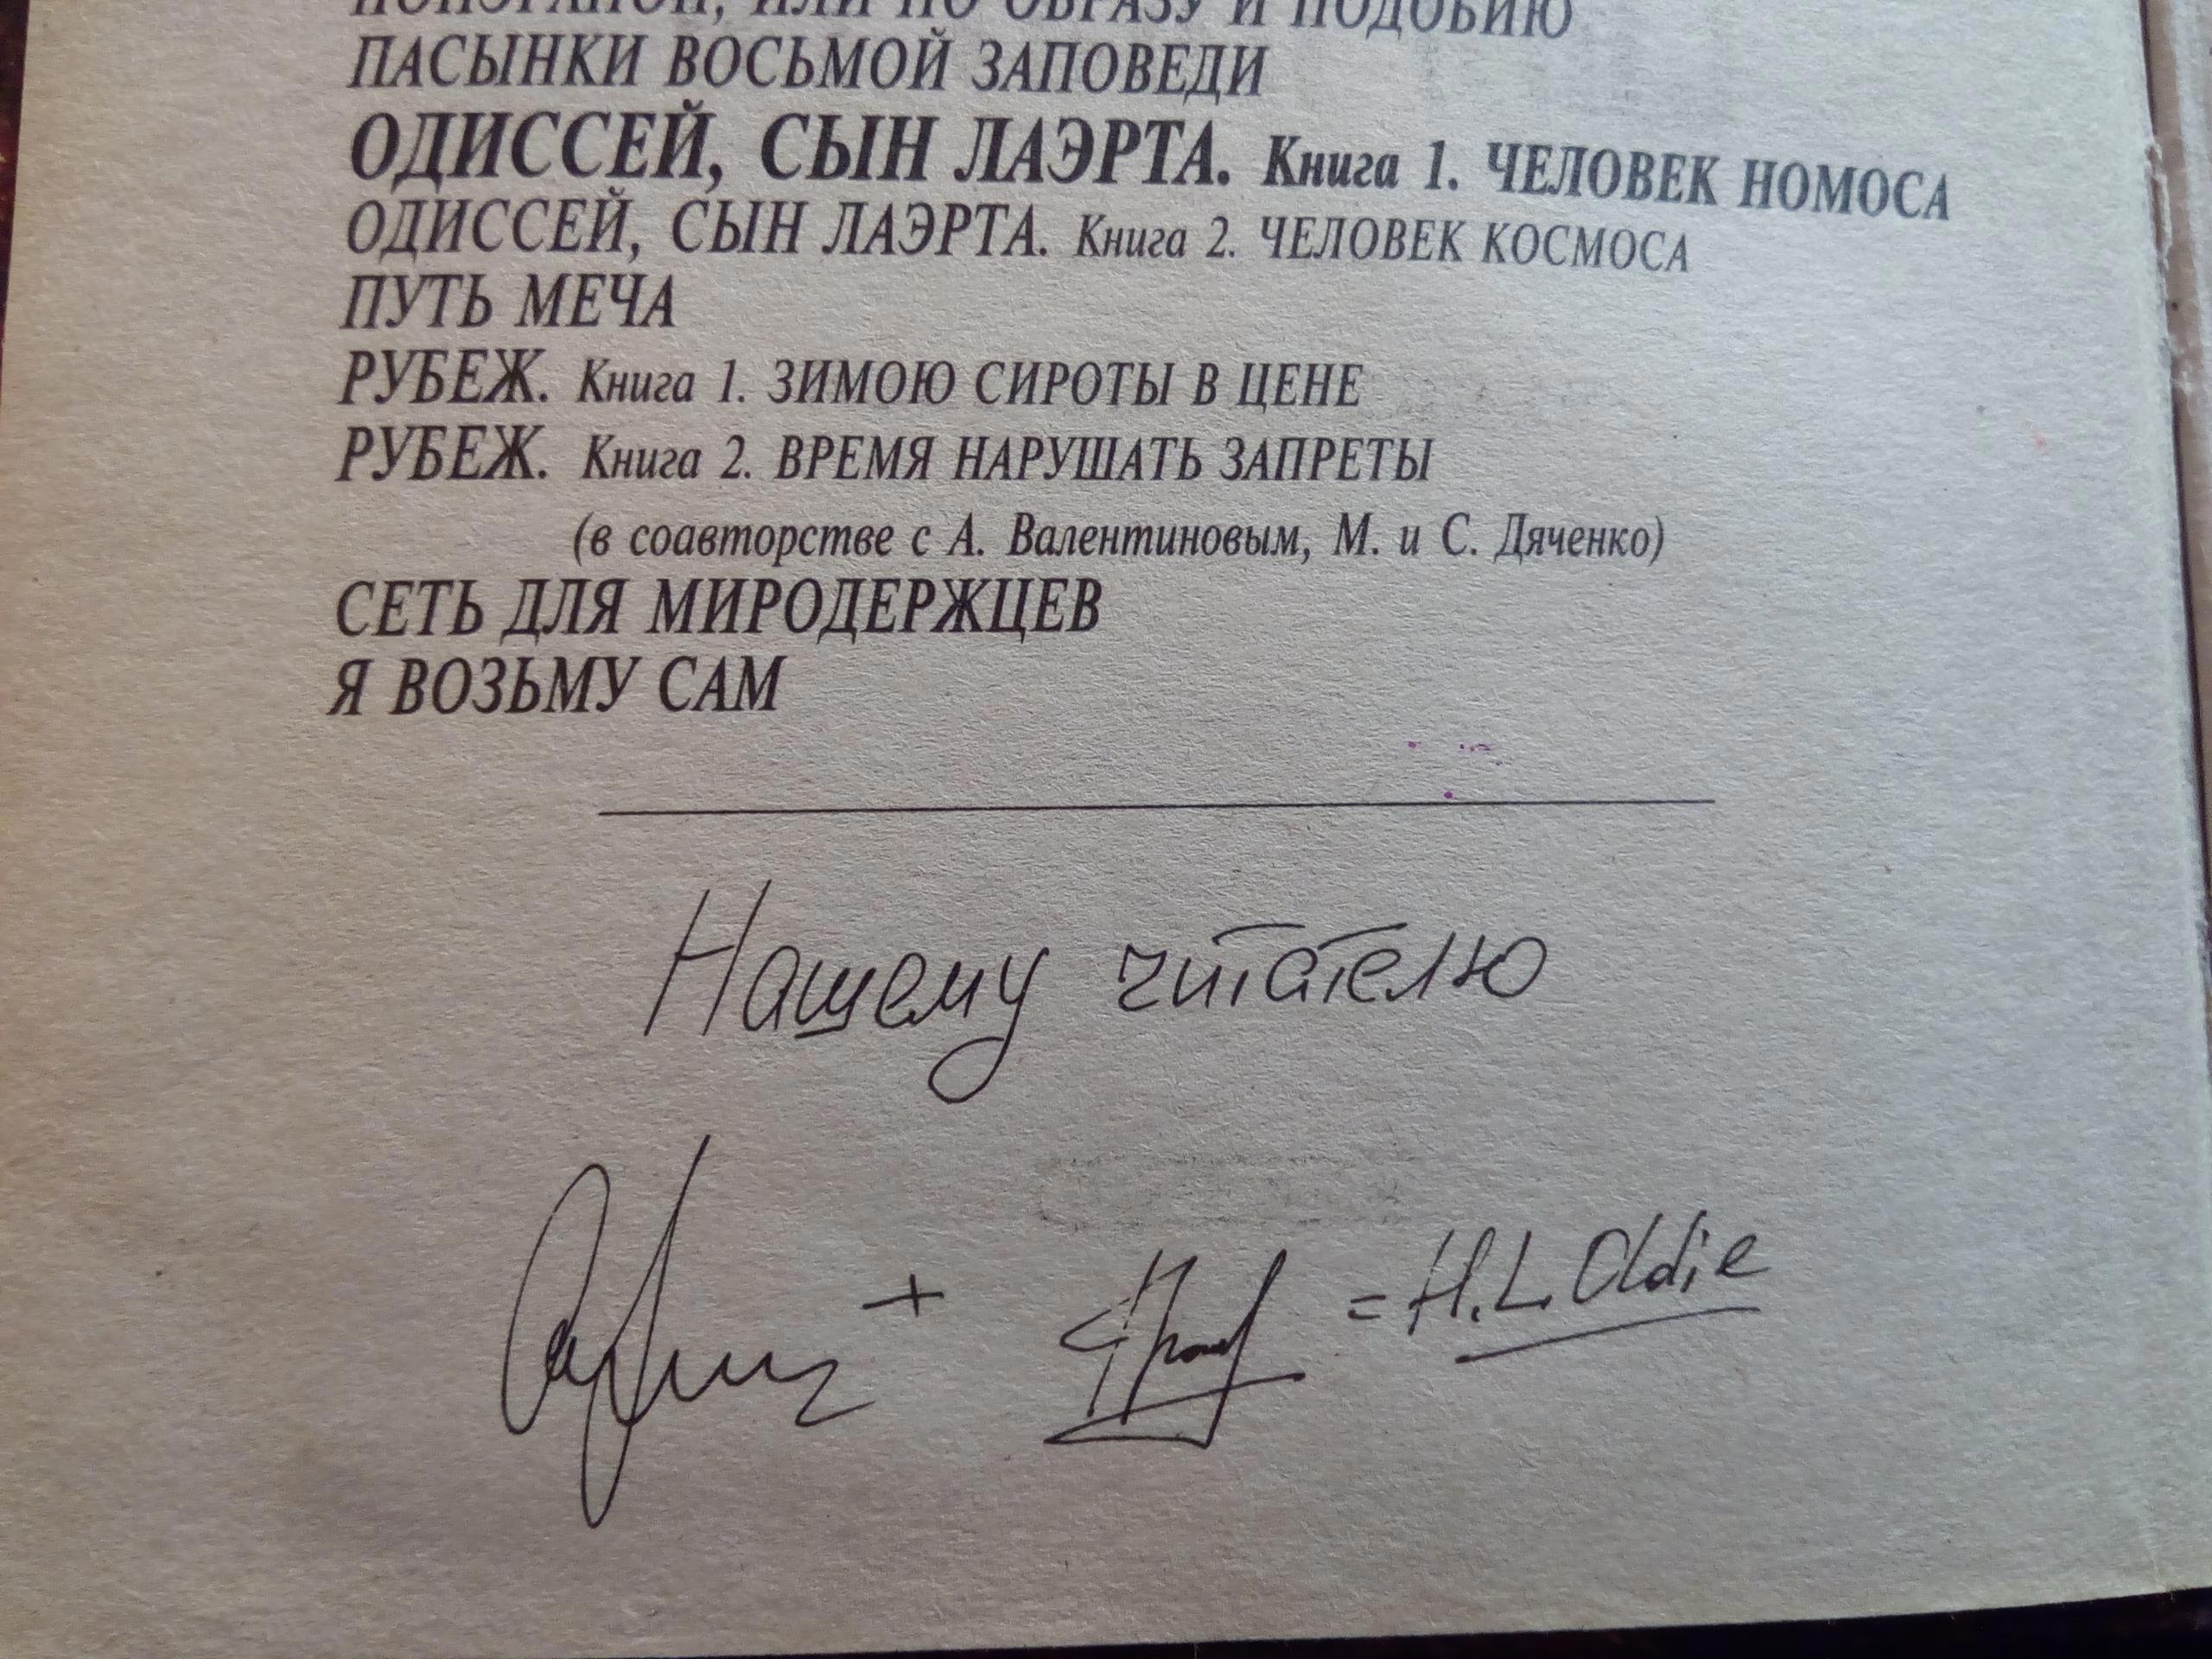 НОПЭРАПОН, ИЛИ ПО ОБРАЗУ И ПОДОБИЮ
ПАСЫНКИ ВОСЬМОЙ ЗАПОВЕДИ
ОДИССЕЙ, СЫН ЛАЭРТА. Книга 1. ЧЕЛОВЕК НОМОСА
ОДИССЕЙ, СЫН ЛАЭРТА. Книга 2. ЧЕЛОВЕК КОСМОСА
ПУТЬ МЕЧА
РУБЕЖ. Книга 1. ЗИМОЮ СИРОТЫ В ЦЕНЕ
РУБЕЖ. Книга 2. ВРЕМЯ НАРУШАТЬ ЗАПРЕТЫ
(в соавторстве с А. Валентиновым, М. и С. Дяченко)
СЕТЬ ДЛЯ МИРОДЕРЖЦЕВ
Я ВОЗЬМУ САМ
Нашему читателю
+ = H.L.Oldie